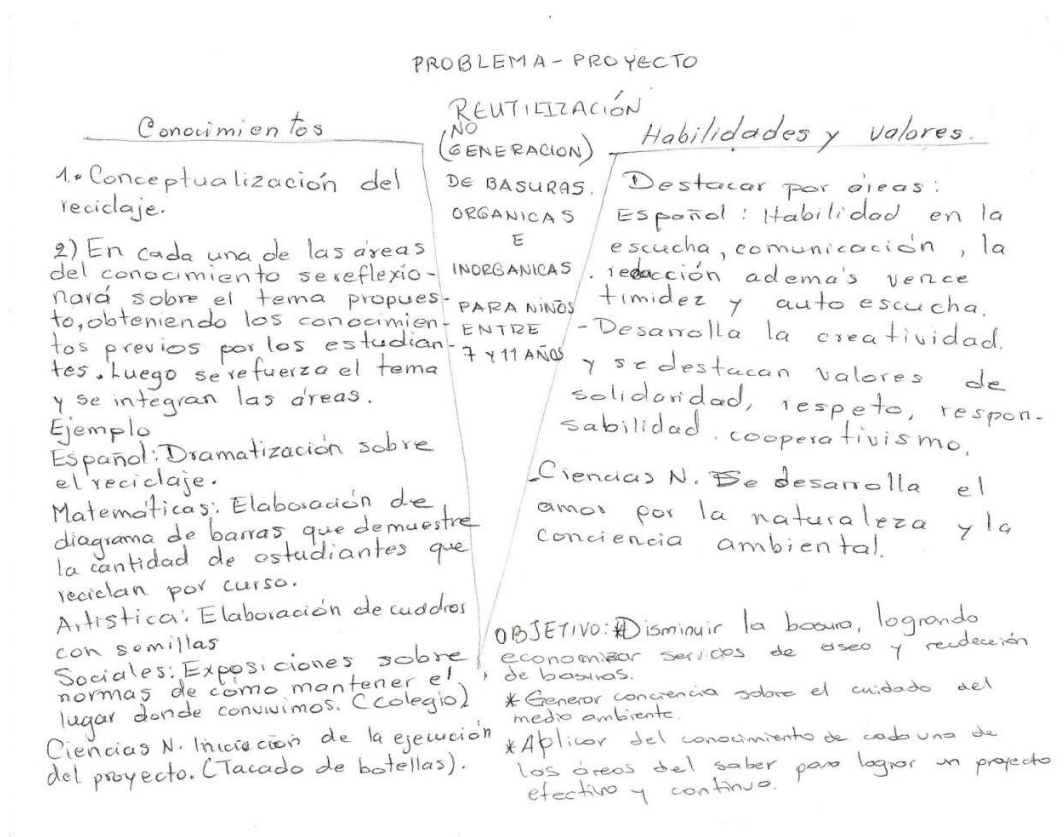 PROBLEMA - PROYECTO
Conocimientos
1. Conceptualización del
reciclaje.
2) En cada una de las áreas
del conocimiento se reflexio-
nará sobre el tema propues-
to, obteniendo los conocimien-
tos previos por los estudian-
tes. Luego se refuerza el tema
y se integran las áreas.
Ejemplo
Español: Dramatización sobre
el reciclaje.
Matemáticas: Elaboración de
diagrama de barras que demuestre
la cantidad de estudiantes que
reciclan por curso.
Artística: Elaboración de cuadros
con semillas
Sociales: Exposiciones sobre
normas de como mantener el
lugar donde convivimos. (colegio)
Ciencias N. Iniciacion de la ejecución
del proyecto. (Tacado de botellas).
REUTILIZACIÓN
NO
(GENERACION)
DE BASURAS.
ORGANICAS
E
INORGANICAS
PARA NIÑOS
ENTRE
7 Y 11 AÑOS
Habilidades y valores.
Destacar por áreas:
Español: Habilidad en la
escucha, comunicación, la
redacción además vence
timidez y auto escucha.
- Desarrolla la creatividad.
y se destacan valores de
solidaridad, respeto, respon-
sabilidad, cooperativismo.
Ciencias N. Se desarrolla el
amor por la naturaleza y la
conciencia ambiental.
OBJETIVO: Disminuir la basura, logrando
economizar servicios de aseo y
de basuras.
* Generar conciencia sobre el cuidado del
medio ambiente.
* Aplicar del conocimiento de cada una de
las áreas del saber para lograr un proyecto
efectivo y continuo.